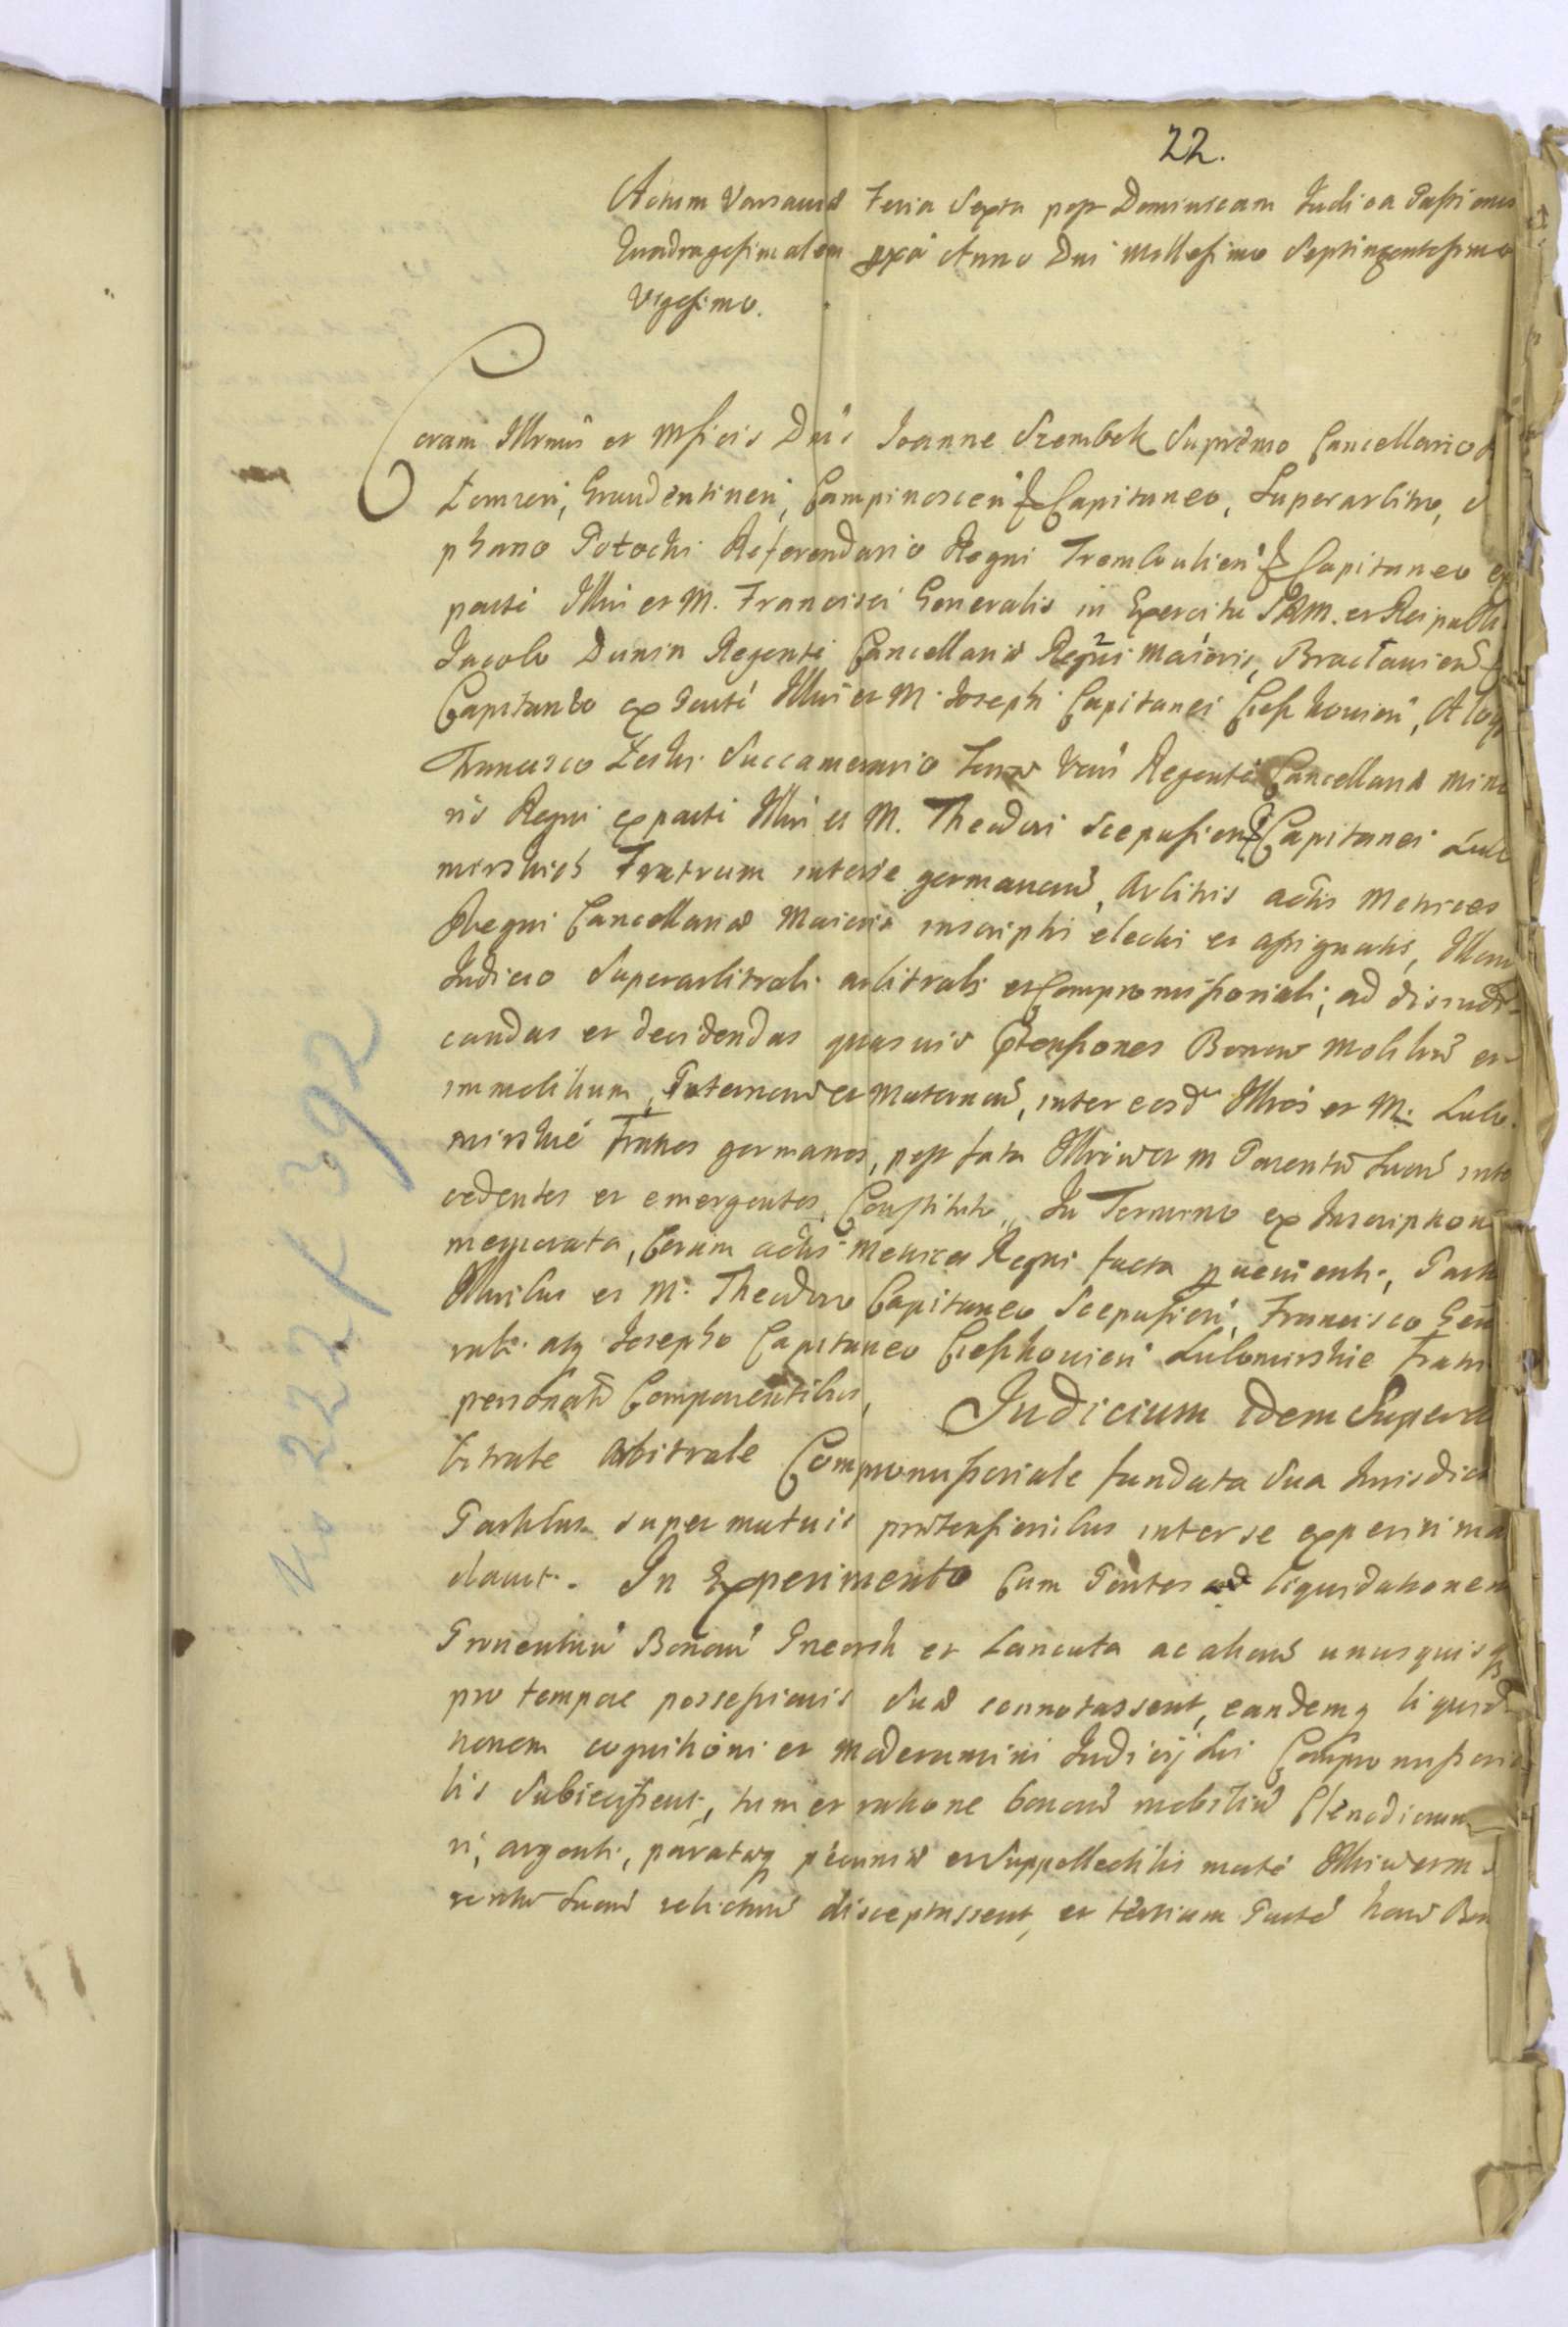 22.
Actum Varsaviæ Feria Sexta post Dominicam Judica Passionis
Quadragesimalem pxã Anno Dni Millesimo Septingentesimo
Vigesimo.
Coram Illrmis et Mficis Dnis Joanne Szembek Supremo Cancellario
Lomzen, Graudentinen, Campinoscen & Capitaneo, Superarbitro,
phano Potocki Referendario Regni Tremboulien & Capitaneo ex
parte Illris et M. Francisci Generalis in Exercitu SRM. et Reipubl.
Jacobo Dunin Regente Cancellariæ Regni Maioris, Braclavien &
Capitaneo ex parte Illris et M. Josephi Capitanei
Francisco Leski Succamerario Terræ Regente Cancellariæ mino
ris Regni ex parte Illris et M. Theodori Scepusien & Capitanei Lubo
mirskich Fratrum inter se germanorũ, Arbitris actis Metrices
Regni Cancellariæ Maioris inscriptis electis et assignatis,
Judicio Superarbitrali arbitrali et Compromissoriali; ad dijudi-
candas et decidendas quasvis Prætensiones Bonorũ Mobiliũ et
immobilium, Paternorũ et Maternorũ, inter eosd Illres et M. Lubo
mirskie Fratres germanos, post fata Illriũ et M Parentũ Suorũ inte
cedentes et emergentes, Constituto, In Termino ex Inscriptione
memorata, Coram actis Metrices Regni facta proveniente,
Illribus et M. Theodoro Capitaneo Scepusien, Francisco Gen
rali atq Josepho Capitaneo Lubomirskie Fratri
personalr Comparentibus, Judicium idem Supera
bitrale Arbitrale Compromissoriale fundata Sua Jurisdict
Partibus super mutuis prætensionibus inter se experiri ma
davit. In Experimento Cum Partes ad liquidationem
Proventuũ Bonorũ et Lancuta ac aliorũ unusquisq
pro tempore possessionis Suæ connotassent, eandemq liquida
tionem cognitioni et moderamini Judicij Sui Compromissoria
lis Subiecissent, tum et ratione bonorũ mobiliũ Clenodiorum
ri, argenti, paratæq pecuniæ et Suppellectilis
rentũ Suorũ relictorũ disceptassent, et tertiam Partẽ horũ Bon
No 222/392